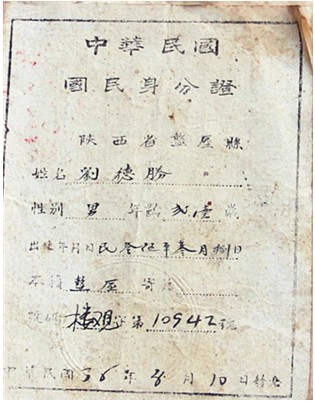 中華民國
國民身分證
陝西省盩厔縣
姓名 劉德勝
性別 男 年齡 貳壹歲
出生年月日 民 年叁月捌日
本籍 盩厔 寄籍
號碼 楼观字第10942號
中華民國36年8月10日發給